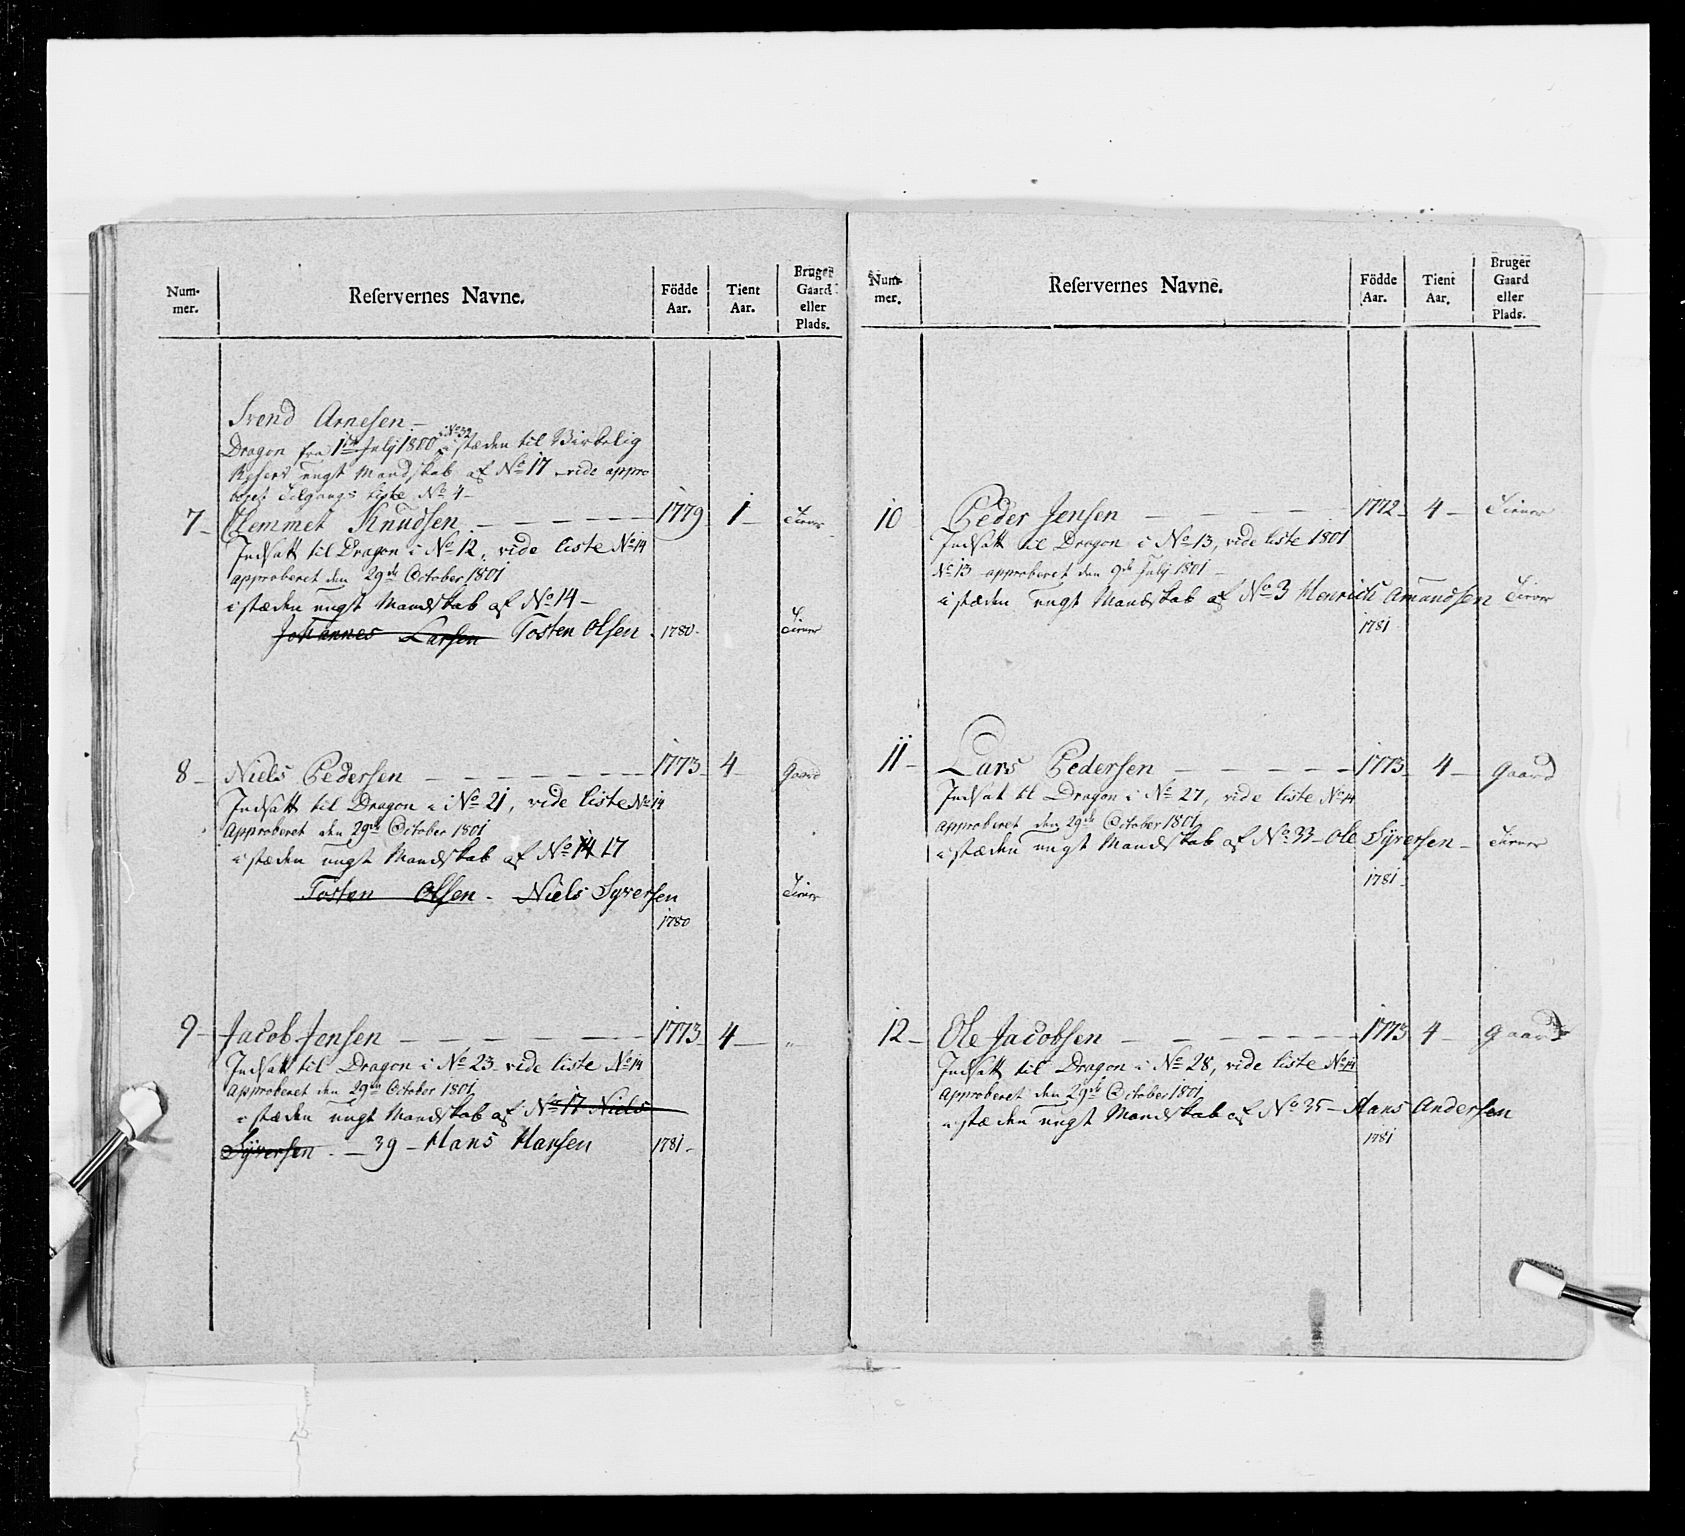 Num-
mer.
Reservernes Navne.
Födde
Aar.
Tient
Aar.
Bruger
Gaard
eller
Plads.
Svend Arnesen.
Dragon fra 1ste Julj 1800 i No 32 i stæden til Virkelig
Reserv ungt Mandskab af No 17 vide appro
beret Tilgangs Liste No 4
7 Clemmet Knudsen 1779 1 Tiener
Indsatt til Dragon i No 12, vide liste No 14
approberet den 29de October 1801
i stæden ungt Mandskab af No 14
Johannes Larsen Tosten Olsen 1780 Tiener
8 Niels Pedersen 1773 4 Gaard
Indsatt til Dragon i No 21, vide liste No 14
Approberet den 29de October 1801
i stæden ungt Mandskab af No 14 17
Tosten Olsen - Niels Syversen Tiener
1780
9 Jacob Jensen 1773 4 "
Indsatt til Dragon i No 23 vide liste No 14
Approberet den 29de October 1801
i stæden ungt Mandskab af No 17 Niels
Syversen - 39 - Hans Hansen 1781
Num-
mer.
Reservernes Navne.
Födde
Aar.
Tient
Aar.
Bruger
Gaard
eller
Plads.
10 Peder Jensen 1772 4 Tiener
Indsatt til Dragon i No 13, vide liste 1801
No 13 approberet den 9de Julj 1801
i stæden ungt Mandskab af No 3 Henrich Amundsen Tiener
1781
11 Lars Pedersen 1773 4 Gaard
Indsat til Dragon i No 27, vide liste No 14
approberet den 29de October 1801
i stæden ungt Mandskab af No 33 Ole Syversen Tiener
1781
12 Ole Jacobsen 1773 4 Gaard
Indsatt til Dragon i No 28, vide liste No 14
Approberet den 29de October 1801
i stæden ungt Mandskab af No 35 - Hans Andersen
1781